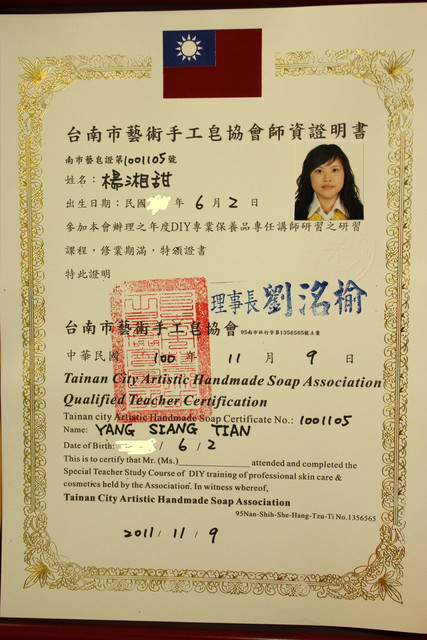 台南市藝術手工皂協會師資證明書
南市藝皂證第1001105號
姓名：楊湘甜
出生日期：民國 年 6 月 2 日
參加本會辦理之年度DIY專業保養品專任講師研習之研習
課程，修業期滿，特頒證書
特此證明
理事長 劉洺榆
台南市藝術手工皂協會 95南市社行字第1356565號立案
中華民國 100 年 11 月 9 日
Tainan City Artistic Handmade Soap Association
Qualified Teacher Certification
Tainan city Artistic Handmade Soap Certificate No.: 1001105
Name: YANG SIANG TIAN
Date of Birth: / 6 / 2
This is to certify that Mr. (Ms.)______________ attended and completed the
Special Teacher Study Course of DIY training of professional skin care &
cosmetics held by the Association. In witness whereof,
Tainan City Artistic Handmade Soap Association
95Nan-Shih-She-Hang-Tzu-Ti No.1356565
2011 / 11 / 9